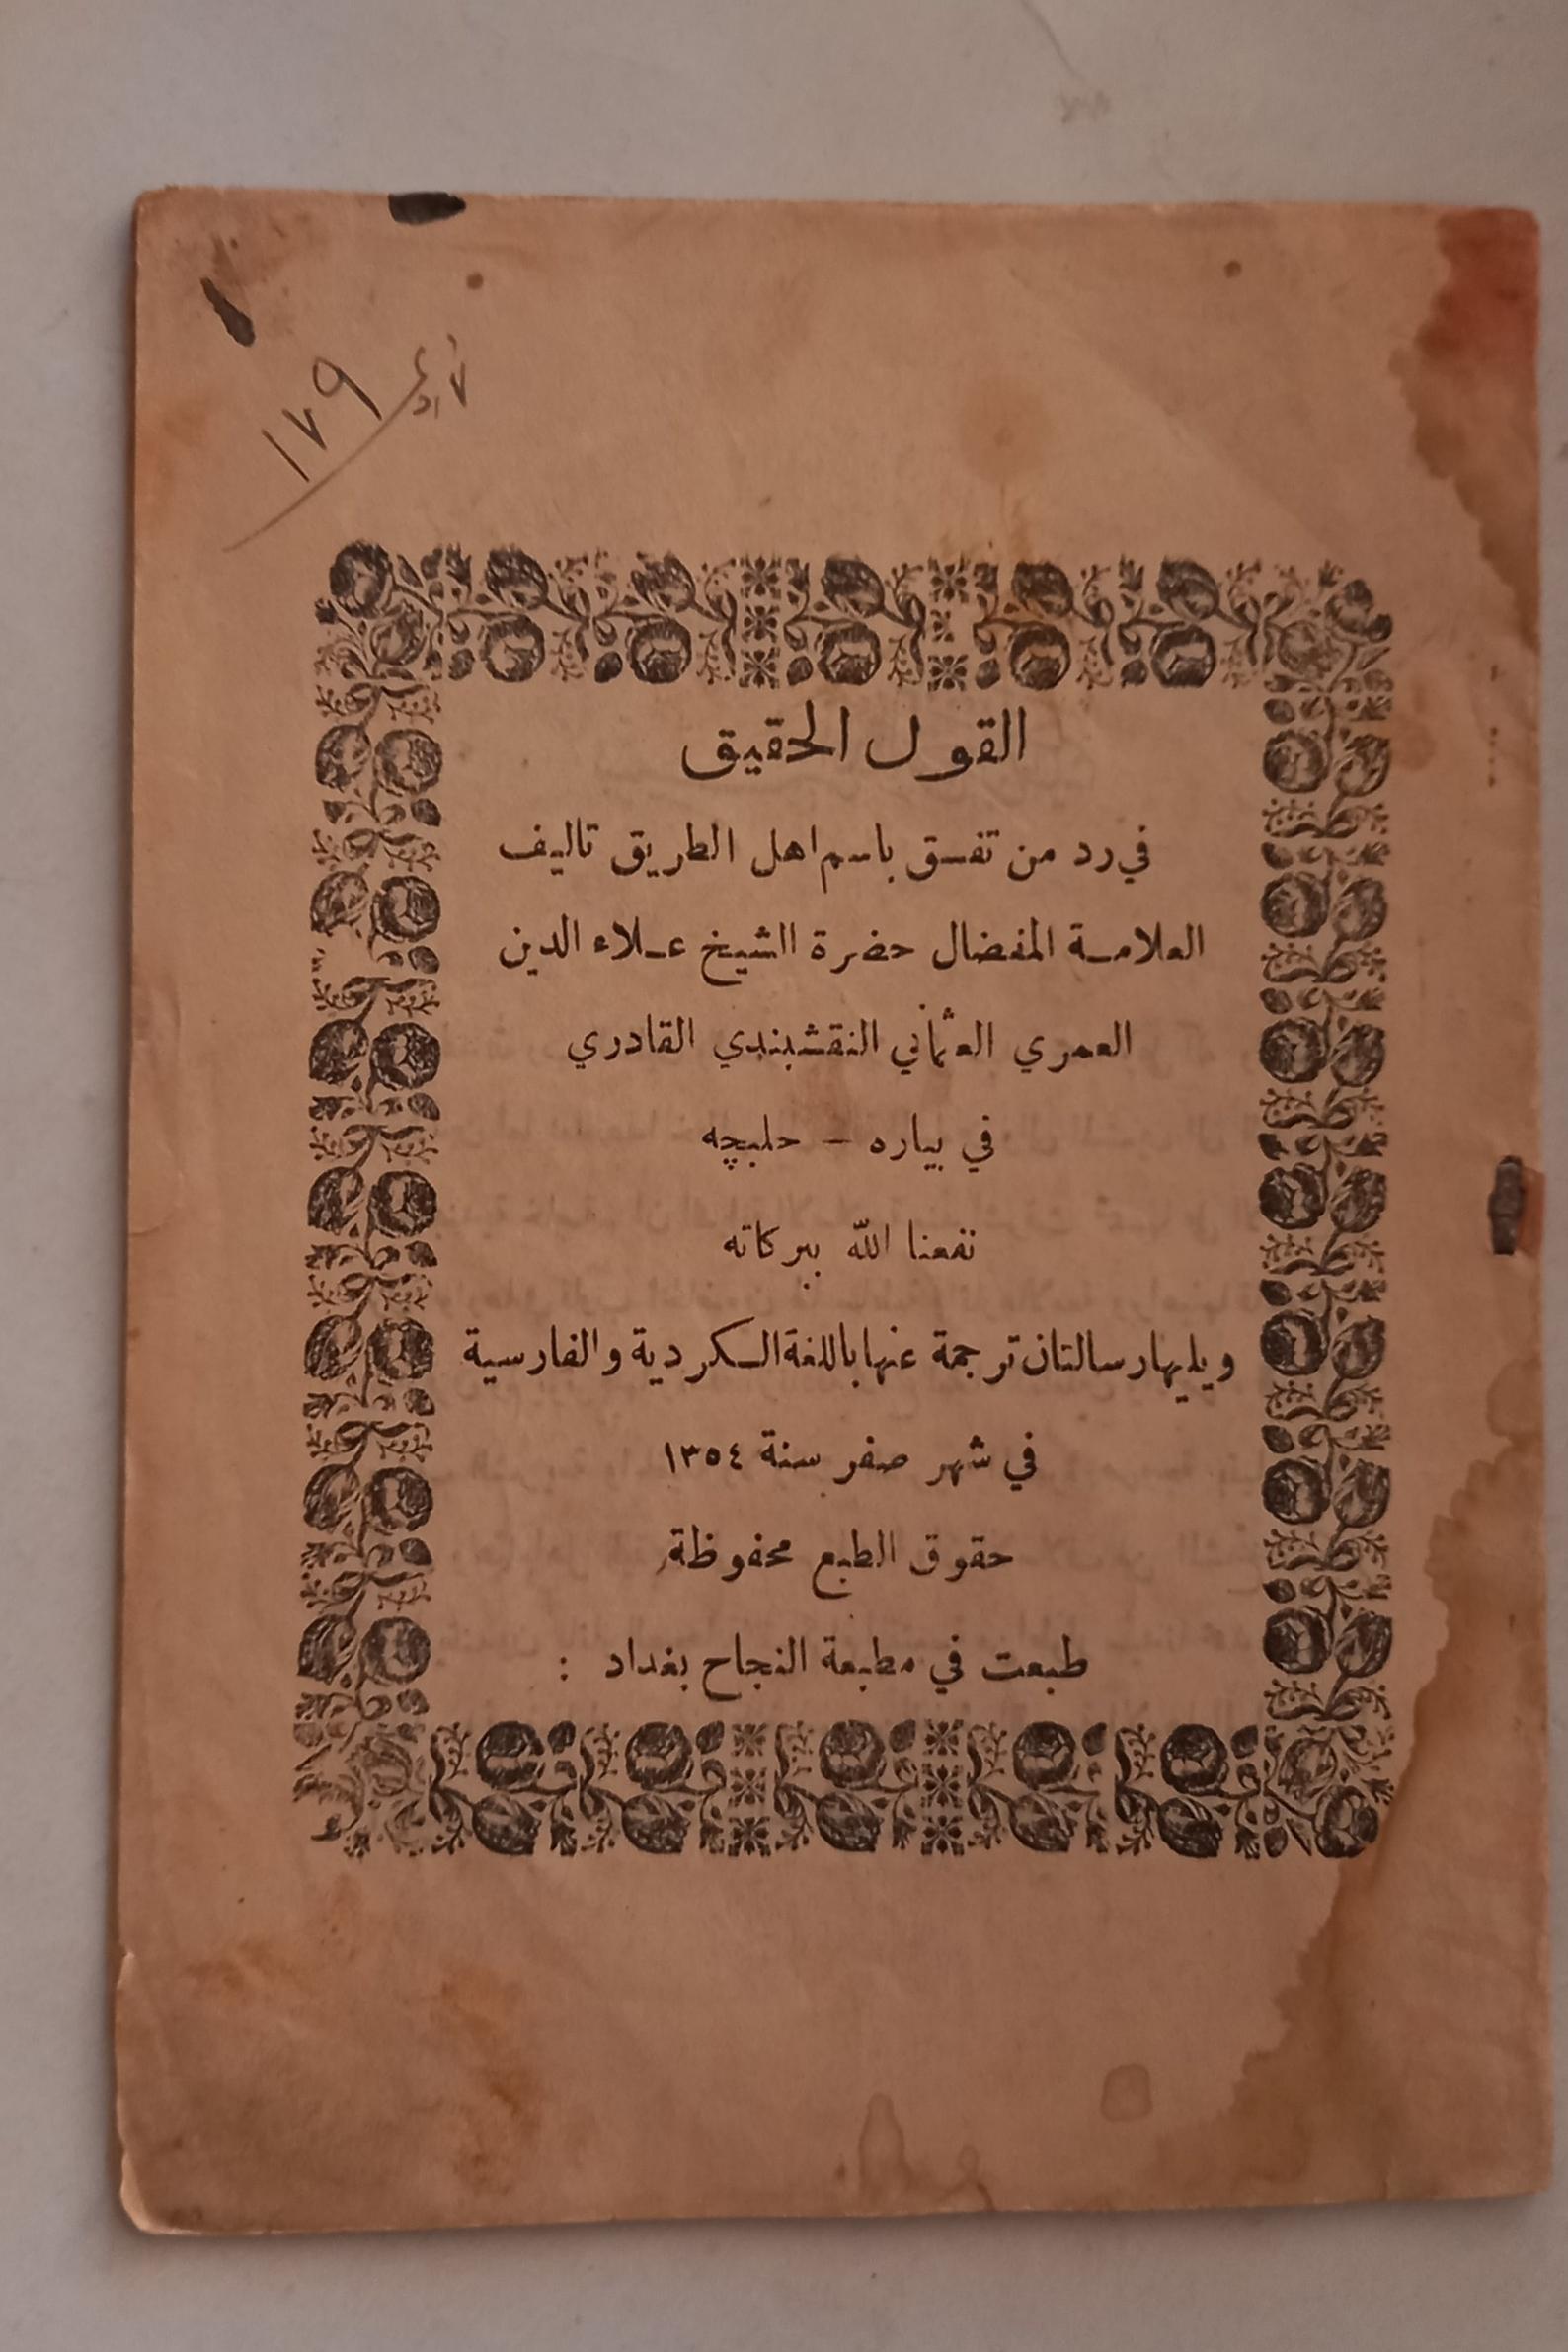 ١٧٩
القول الحقيق
في رد من تفسق باسم اهل الطريق تاليف
العلامة المفضال حضرة الشيخ علاء الدين
العمري العثماني النقشبندي القادري
في بياره - حلبچه
نفعنا الله ببركاته
ويليها رسالتان ترجمة عنها باللغة الكردية والفارسية
في شهر صفر سنة ١٣٥٤
حقوق الطبع محفوظة
طبعت في مطبعة النجاح بغداد :